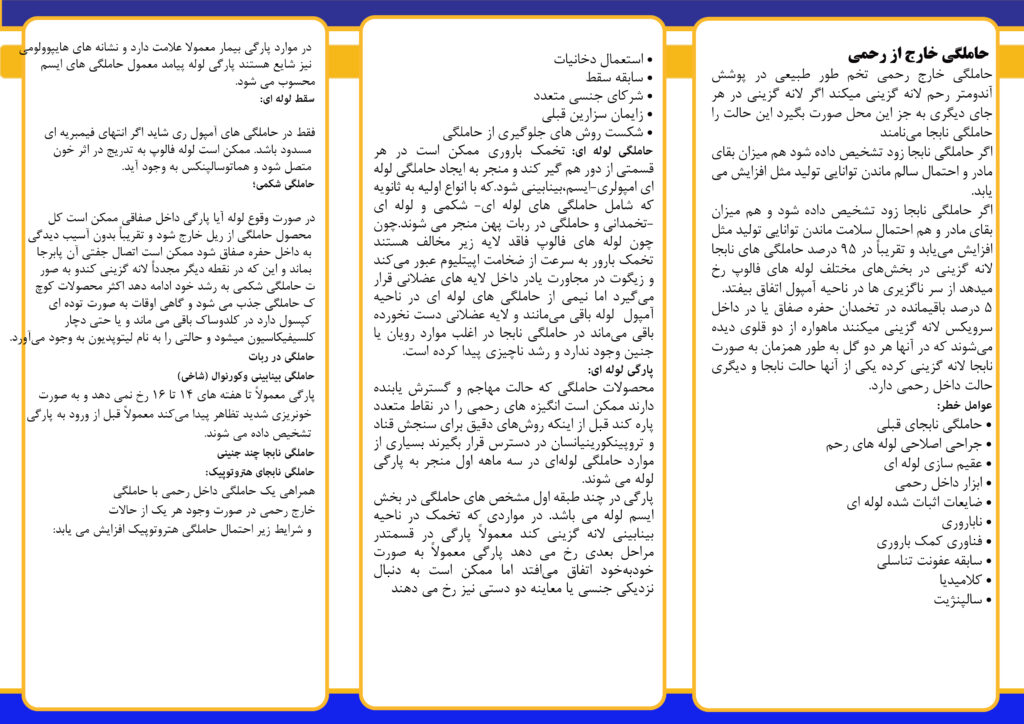 حاملگی خارج از رحمی
حاملگی خارج رحمی تخم طور طبیعی در پوشش
آندومتر رحم لانه گزینی میکند اگر لانه گزینی در هر
جای دیگری به جز این محل صورت بگیرد این حالت را
حاملگی نابجا می‌نامند
اگر حاملگی نابجا زود تشخیص داده شود هم میزان بقای
مادر و احتمال سالم ماندن توانایی تولید مثل افزایش می
یابد.
اگر حاملگی نابجا زود تشخیص داده شود و هم میزان
بقای مادر و هم احتمال سلامت ماندن توانایی تولید مثل
افزایش می‌یابد و تقریباً در ۹۵ درصد حاملگی های نابجا
لانه گزینی در بخش‌های مختلف لوله های فالوپ رخ
میدهد از سر ناگزیری ها در ناحیه آمپول اتفاق بیفتد.
۵ درصد باقیمانده در تخمدان حفره صفاق یا در داخل
سرویکس لانه گزینی میکنند ماهواره از دو قلوی دیده
می‌شوند که در آنها هر دو گل به طور همزمان به صورت
نابجا لانه گزینی کرده یکی از آنها حالت نابجا و دیگری
حالت داخل رحمی دارد.
عوامل خطر:
• حاملگی نابجای قبلی
• جراحی اصلاحی لوله های رحم
• عقیم سازی لوله ای
• ابزار داخل رحمی
• ضایعات اثبات شده لوله ای
• ناباروری
• فناوری کمک باروری
• سابقه عفونت تناسلی
• کلامیدیا
• سالپنژیت
• استعمال دخانیات
• سابقه سقط
• شرکای جنسی متعدد
• زایمان سزارین قبلی
• شکست روش های جلوگیری از حاملگی
حاملگی لوله ای: تخمک باروری ممکن است در هر
قسمتی از دور هم گیر کند و منجر به ایجاد حاملگی لوله
ای امپولری-ایسم،بینابینی شود.که با انواع اولیه به ثانویه
که شامل حاملگی های لوله ای- شکمی و لوله ای
-تخمدانی و حاملگی در ربات پهن منجر می شوند.چون
چون لوله های فالوپ فاقد لایه زیر مخالف هستند
تخمک بارور به سرعت از ضخامت اپیتلیوم عبور می‌کند
و زیگوت در مجاورت یادر داخل لایه های عضلانی قرار
می‌گیرد اما نیمی از حاملگی های لوله ای در ناحیه
آمپول لوله باقی می‌مانند و لایه عضلانی دست نخورده
باقی می‌ماند در حاملگی نابجا در اغلب موارد رویان یا
جنین وجود ندارد و رشد ناچیزی پیدا کرده است.
پارگی لوله ای:
محصولات حاملگی که حالت مهاجم و گسترش یابنده
دارند ممکن است انگیزه های رحمی را در نقاط متعدد
پاره کند قبل از اینکه روش‌های دقیق برای سنجش قناد
و تروپینکورینیانسان در دسترس قرار بگیرند بسیاری از
موارد حاملگی لوله‌ای در سه ماهه اول منجر به پارگی
لوله می شوند.
پارگی در چند طبقه اول مشخص های حاملگی در بخش
ایسم لوله می باشد. در مواردی که تخمک در ناحیه
بینابینی لانه گزینی کند معمولاً پارگی در قسمتدر
مراحل بعدی رخ می دهد پارگی معمولاً به صورت
خودبه‌خود اتفاق می‌افتد اما ممکن است به دنبال
نزدیکی جنسی یا معاینه دو دستی نیز رخ می دهند
در موارد پارگی بیمار معمولا علامت دارد و نشانه های هایپوولومی
نیز شایع هستند پارگی لوله پیامد معمول حاملگی های ایسم
محسوب می شود.
سقط لوله ای:
فقط در حاملگی های آمپول ری شاید اگر انتهای فیمبریه ای
مسدود باشد. ممکن است لوله فالوپ به تدریج در اثر خون
متصل شود و هماتوسالپنکس به وجود آید.
حاملگی شکمی؛
در صورت وقوع لوله آیا پارگی داخل صفاقی ممکن است کل
محصول حاملگی از ریل خارج شود و تقریباً بدون آسیب دیدگی
به داخل حفره صفاق شود ممکن است اتصال جفتی آن پابرجا
بماند و این که در نقطه دیگر مجدداً لانه گزینی کندو به صور
ت حاملگی شکمی به رشد خود ادامه دهد اکثر محصولات کوچ
ک حاملگی جذب می شود و گاهی اوقات به صورت توده ای
کپسول دارد در کلدوساک باقی می ماند و یا حتی دچار
کلسیفیکاسیون میشود و حالتی را به نام لیتوپدیون به وجود می‌آورد.
حاملگی در ربات
حاملگی بینابینی وکورنوال (شاخی)
پارگی معمولاً تا هفته های ۱۴ تا ۱۶ رخ نمی دهد و به صورت
خونریزی شدید تظاهر پیدا می‌کند معمولاً قبل از ورود به پارگی
تشخیص داده می شوند.
حاملگی نابجا چند جنینی
حاملگی نابجای هتروتوپیک:
همراهی یک حاملگی داخل رحمی با حاملگی
خارج رحمی در صورت وجود هر یک از حالات
و شرایط زیر احتمال حاملگی هتروتوپیک افزایش می یابد: